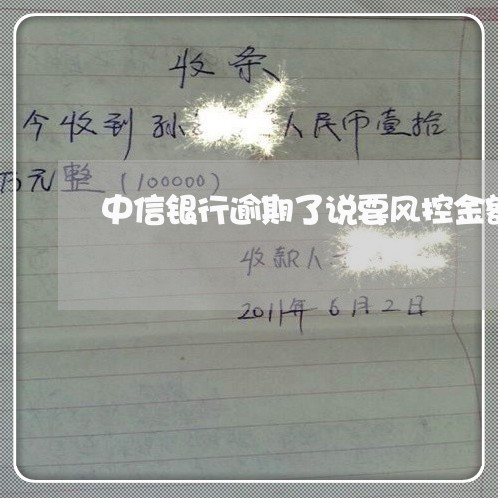 收条
今收到孙 人民币壹拾
万元整(100000)
中信银行逾期了说要风控金额
收款人
2011年6月2日